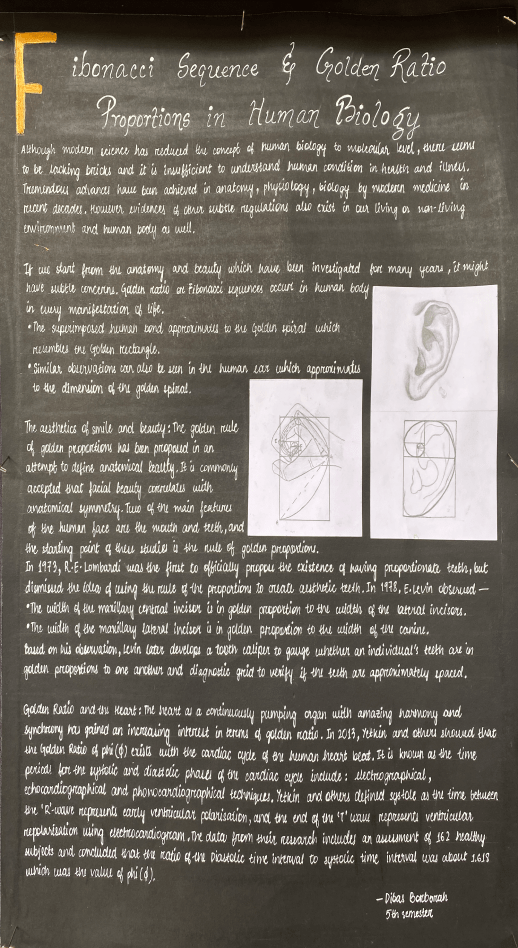 Fibonacci Sequence & Golden Ratio
Proportions in Human Biology
Although modern science has reduced the concept of human biology to molecular level, there seems
to be lacking bricks and it is insufficient to understand human condition in health and illness.
Tremendous advances have been achieved in anatomy, physiology, biology by modern medicine in
recent decades. However evidences of other subtle regulations also exist in our living or non-living
environment and human body as well.
If we start from the anatomy and beauty which have been investigated for many years, it might
have subtle concerns. Golden ratio or Fibonacci sequences occur in human body
in every manifestation of life.
• The superimposed human hand approximates to the Golden spiral which
resembles the Golden rectangle.
• Similar observations can also be seen in the human ear which approximates
to the dimension of the golden spiral.
The aesthetics of smile and beauty: The golden rule
of golden proportions has been proposed in an
attempt to define anatomical beauty. It is commonly
accepted that facial beauty correlates with
anatomical symmetry. Two of the main features
of the human face are the mouth and teeth, and
the starting point of these studies is the rule of golden proportions.
In 1973, R.E. Lombardi was the first to officially propose the existence of having proportionate teeth, but
dismissed the idea of using the rule of the proportion to create aesthetic teeth. In 1978, E. Levin observed —
• The width of the maxillary central incisor is in golden proportion to the width of the lateral incisors.
• The width of the maxillary lateral incisor is in golden proportion to the width of the canine.
Based on his observation, Levin later develops a tooth caliper to gauge whether an individual's teeth are in
golden proportions to one another and diagnostic grid to verify if the teeth are approximately spaced.
Golden Ratio and the Heart: The heart as a continuously pumping organ with amazing harmony and
synchrony has gained an increasing interest in terms of golden ratio. In 2013, Yetkin and others showed that
the Golden Ratio of phi (ϕ) exists with the cardiac cycle of the human heart beat. It is known as the time
periods for the systolic and diastolic phases of the cardiac cycle include: electrographical,
echocardiographical and phonocardiographical techniques. Yetkin and others defined systole as the time between
the 'R'-wave represents early ventricular polarisation, and the end of the 'T' wave represents ventricular
repolarisation using electrocardiogram. The data from their research includes an assessment of 162 healthy
subjects and concluded that the ratio of the Diastolic time interval to systolic time interval was about 1.618
which was the value of phi (ϕ).
— Dibas Borborah
5th semester